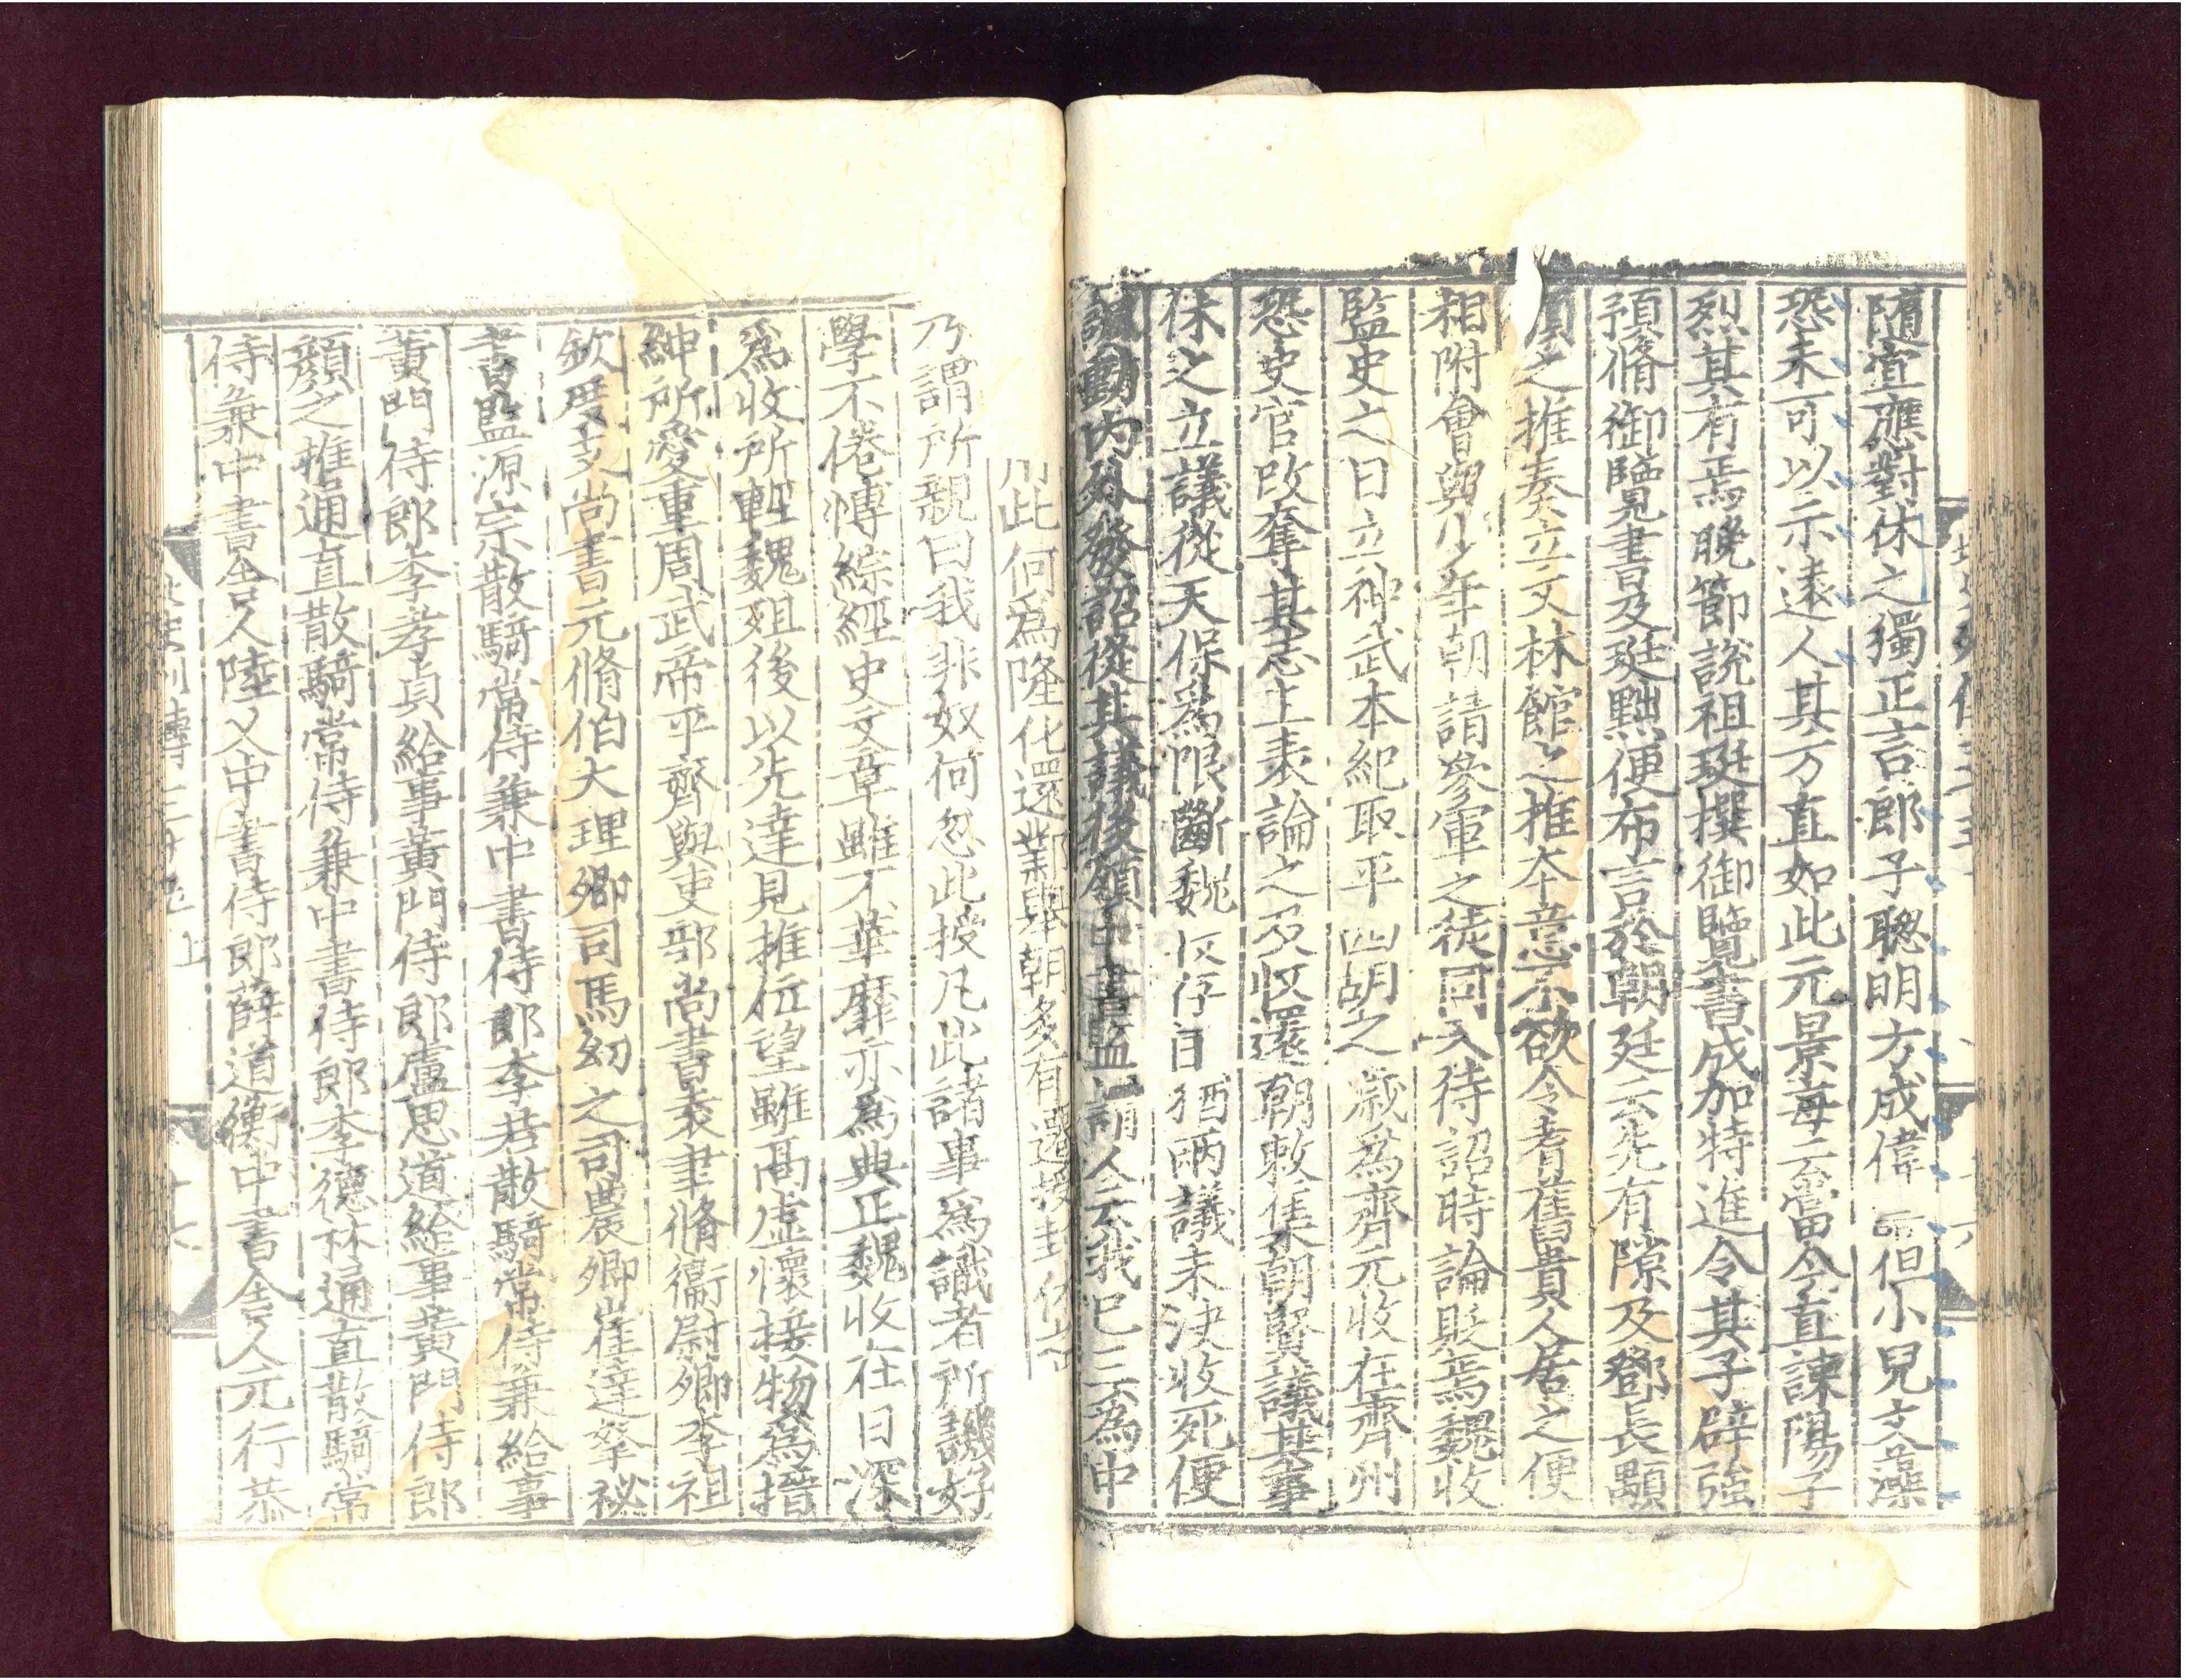 隨宜應對休之獨正言郎子聦明方成偉但小兒文藻
恐未可以示遠人其方直如此元景每云當今直諫陽子
烈其有焉晚節說祖珽撰御覽書成加特進令其子辟強
預脩御覽書及珽黜便布言於朝廷云先有隙及鄧長顒
之推奏立文林館之推本意不欲令耆舊貴人居之便
相附會與少年朝請參軍之徒同入待詔時論貶焉魏收
監史之日立神武本紀取平胡之歲為齊元收在齊州
恐史官改奪其志上表論之及收還朝敕集朝賢議其事
休之立議從天保爲限斷魏收存日猶兩議未決收死便
諷動內外發詔從其議後領中書監謂人云我已三為中
此何爲隆化還鄴舉朝多有遷授封休之
乃謂所親曰我非奴何忽此授凡此諸事爲識者所譏好
學不倦博綜經史文章雖不華靡亦爲典正魏收在日深
爲收所輕魏殂後以先達見推位望雖高虛懷接物爲搢
紳所愛重周武帝平齊與吏部尚書袁聿脩衞尉卿李祖
欽度支尚書元脩伯大理卿司馬幼之司農卿崔達拏祕
書監源宗散騎常侍兼中書侍郎李若散騎常侍兼給事
黃門侍郎李孝貞給事黃門侍郎盧思道給事黃門侍郎
顏之推通直散騎常侍兼中書侍郎李德林通直散騎常
侍兼中書舍人陸乂中書侍郎薛道衡中書舍人元行恭